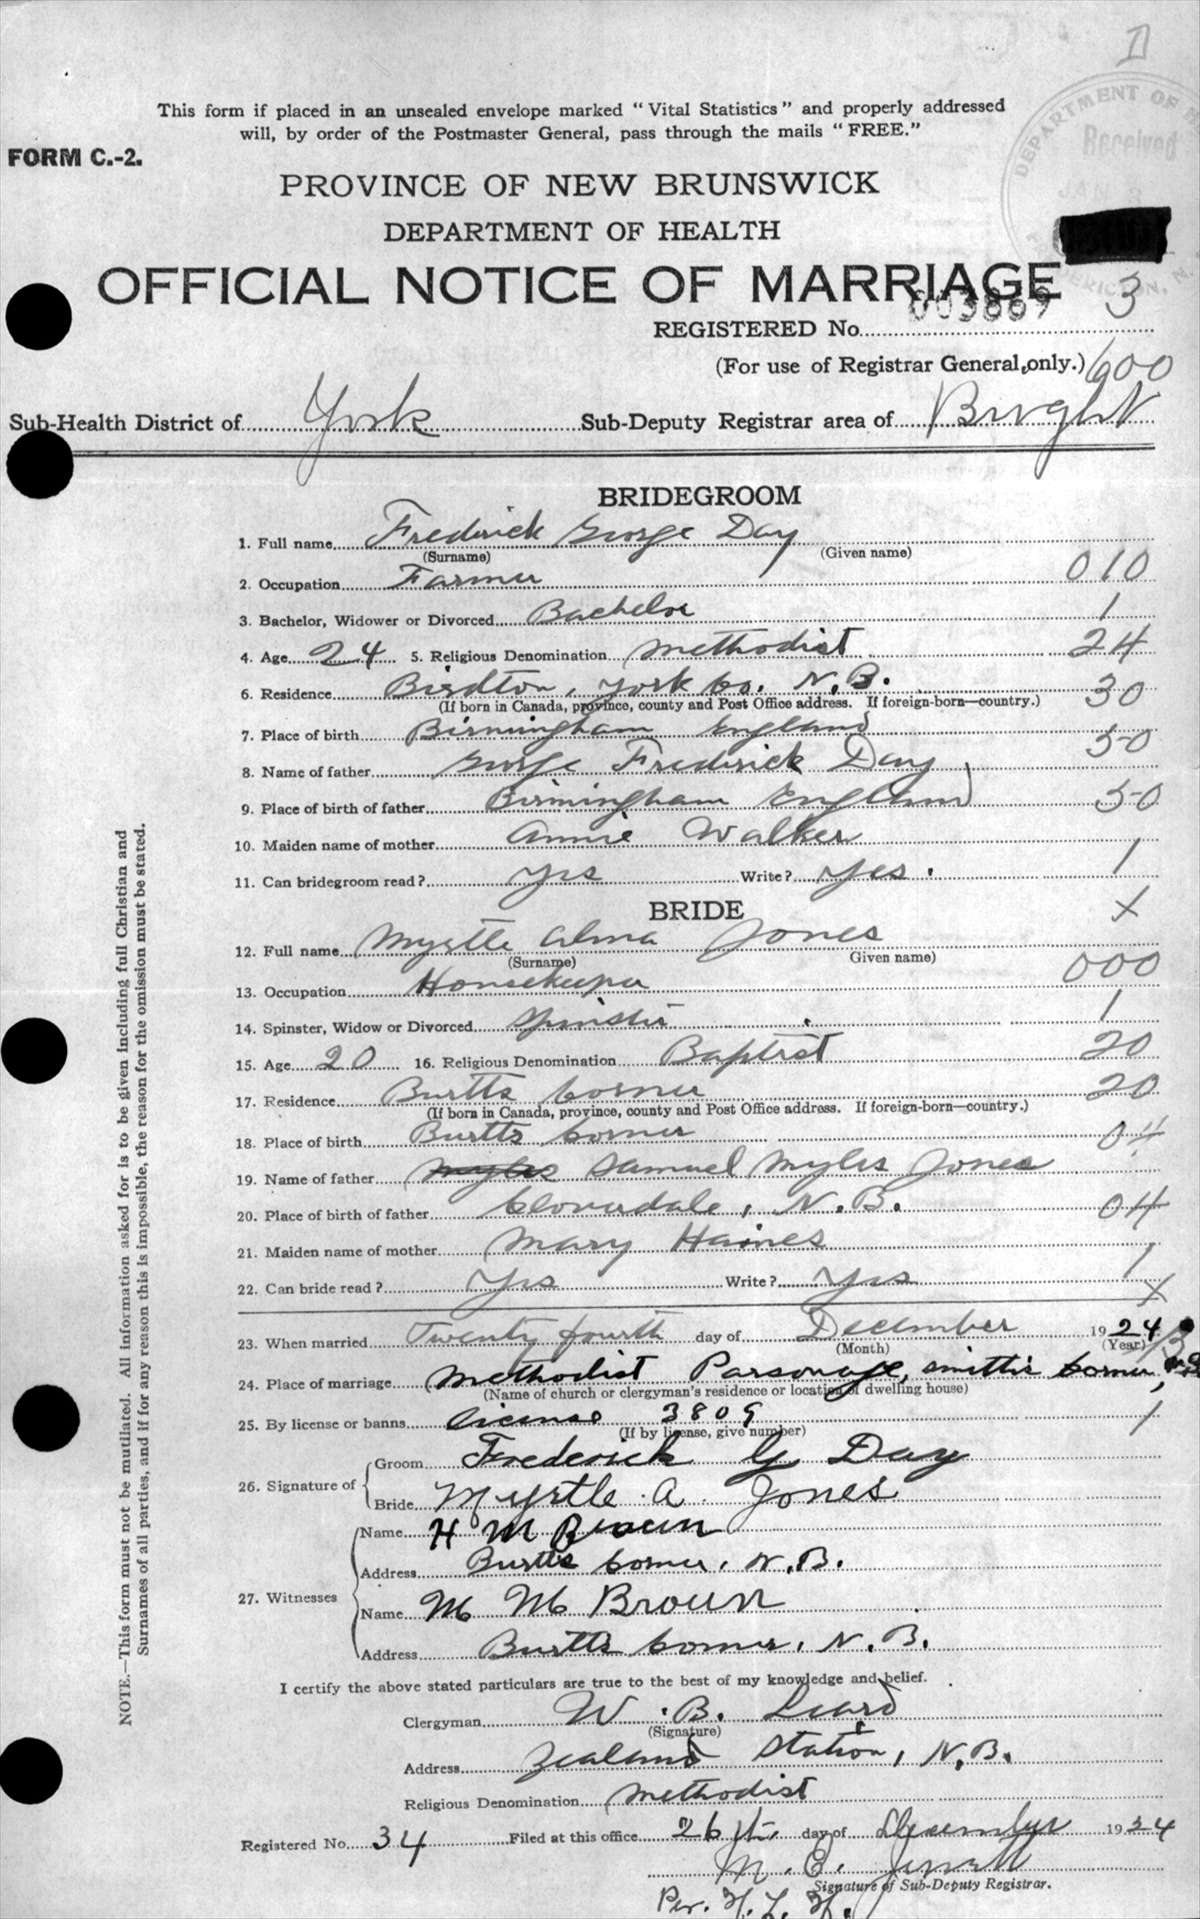 This form if placed in an unsealed envelope marked "Vital Statistics" and properly addressed
will, by order of the Postmaster General, pass through the mails "FREE."
FORM C.-2.
DEPARTMENT OF
Received
JAN
PROVINCE OF NEW BRUNSWICK
DEPARTMENT OF HEALTH
OFFICIAL NOTICE OF MARRIAGE
REGISTERED No. 003869 3
(For use of Registrar General only.) 600
Sub-Health District of York Sub-Deputy Registrar area of Bright
BRIDEGROOM
1. Full name Frederick George Day
(Surname) (Given name)
2. Occupation Farmer 010
3. Bachelor, Widower or Divorced Bachelor 1
4. Age 24 5. Religious Denomination Methodist 24
6. Residence Birdton, York Co. N.B. 30
(If born in Canada, province, county and Post Office address. If foreign-born—country.)
7. Place of birth Birmingham England 50
8. Name of father George Frederick Day
9. Place of birth of father Birmingham England 50
10. Maiden name of mother Annie Walker
11. Can bridegroom read? Yes Write? Yes. 1
BRIDE X
12. Full name Myrtle Alma Jones
(Surname) Given name)
13. Occupation Housekeeper 000
14. Spinster, Widow or Divorced Spinster 1
15. Age 20 16. Religious Denomination Baptist 20
17. Residence Burtts Corner 20
(If born in Canada, province, county and Post Office address. If foreign-born—country.)
18. Place of birth Burtts Corner 04
19. Name of father Myles Samuel Myles Jones
20. Place of birth of father Cloverdale, N.B. 04
21. Maiden name of mother Mary Haines
22. Can bride read? Yes Write? Yes 1
X
23. When married Twenty fourth day of December 1924
(Month) (Year)
24. Place of marriage Methodist Parsonage, Smiths Corner,
(Name of church or clergyman's residence or location of dwelling house)
25. By license or banns License 3809 1
(If by license, give number)
26. Signature of Groom Frederick G Day
Bride Myrtle A. Jones
27. Witnesses Name H M Brown
Address Burtts Corner, N.B.
Name M M Brown
Address Burtts Corner, N.B.
I certify the above stated particulars are true to the best of my knowledge and belief.
Clergyman W. B. Leard
(Signature)
Address Zealand Station, N.B.
Religious Denomination Methodist
Registered No. 34 Filed at this office 26th day of December 1924
M. E.
Signature of Sub-Deputy Registrar.
Per. H. L. H.
NOTE.—This form must not be mutilated. All information asked for is to be given including full Christian and
Surnames of all parties, and if for any reason this is impossible, the reason for the omission must be stated.